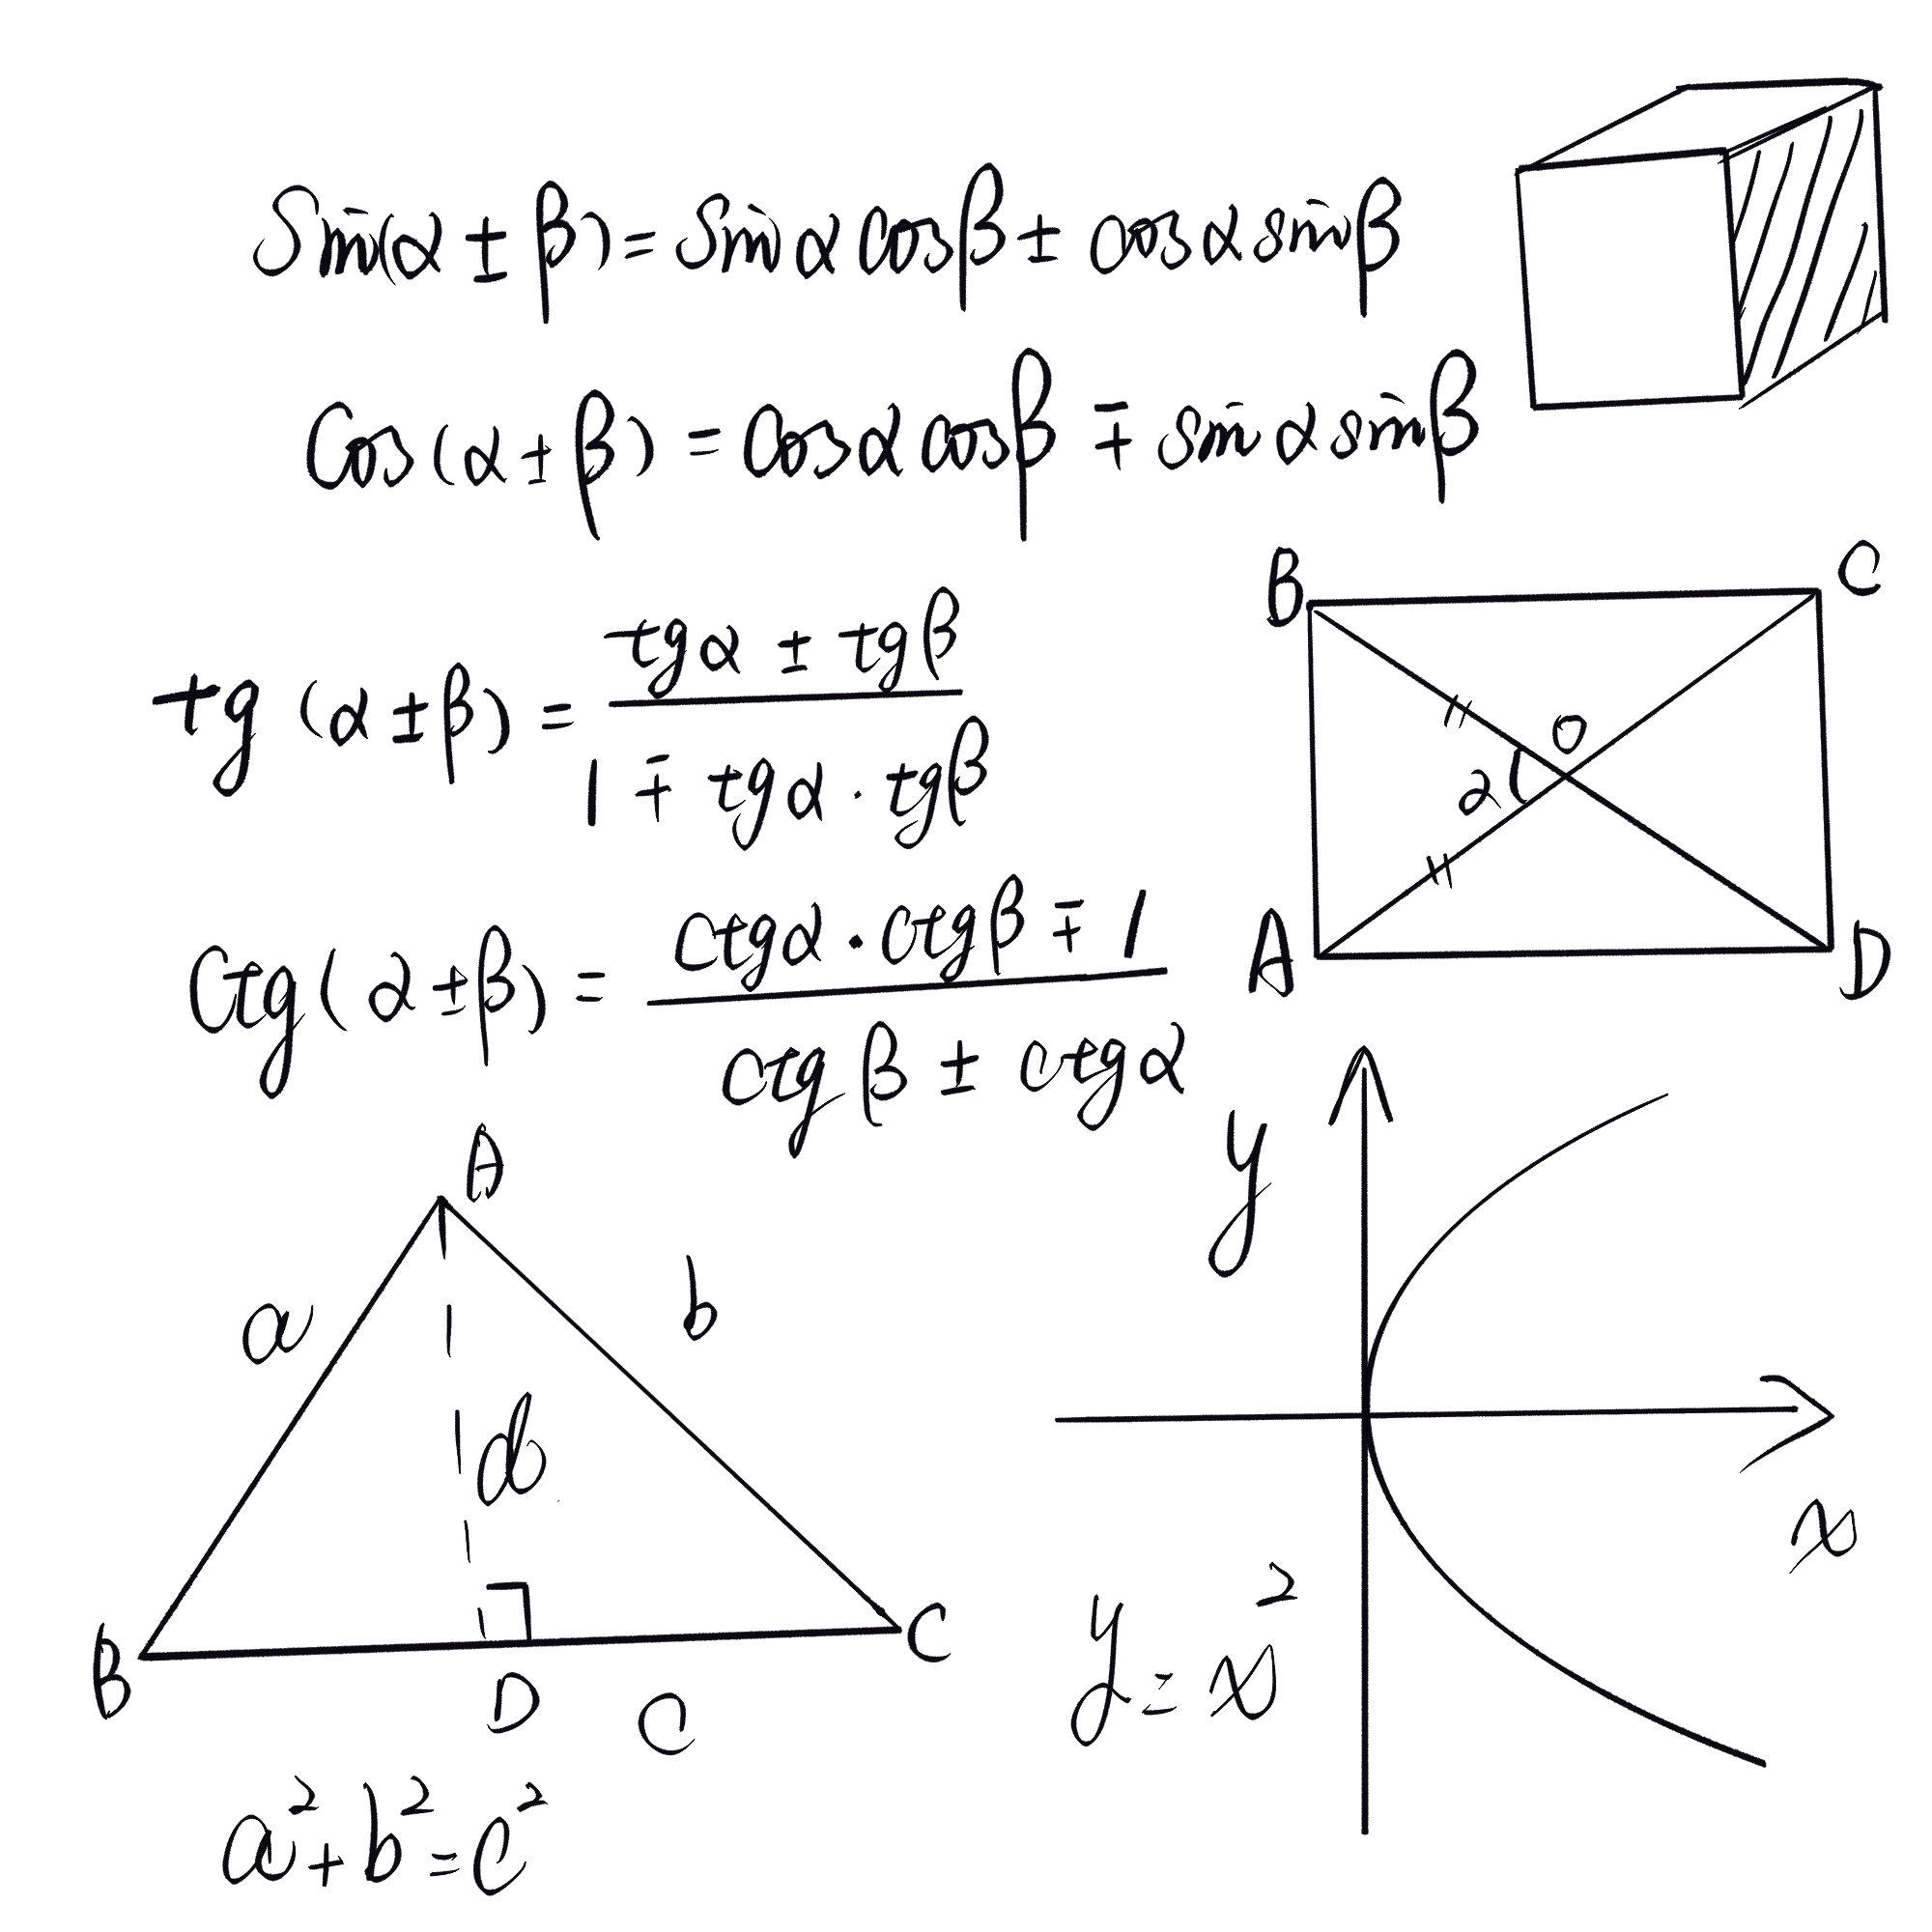 Sin(α ± β) = Sin α cos β ± cos α sin β
Cos (α ± β) = Cos α cos β ∓ sin α sin β
B C
tg (α ± β) = tgα ± tgβ / 1 ∓ tgα · tgβ
O
α
Ctg (α ± β) = ctgα · ctgβ ∓ 1 / ctg β ± ctgα
A D
A
y
a b
d
x
B C
D C
y = x²
a² + b² = c²